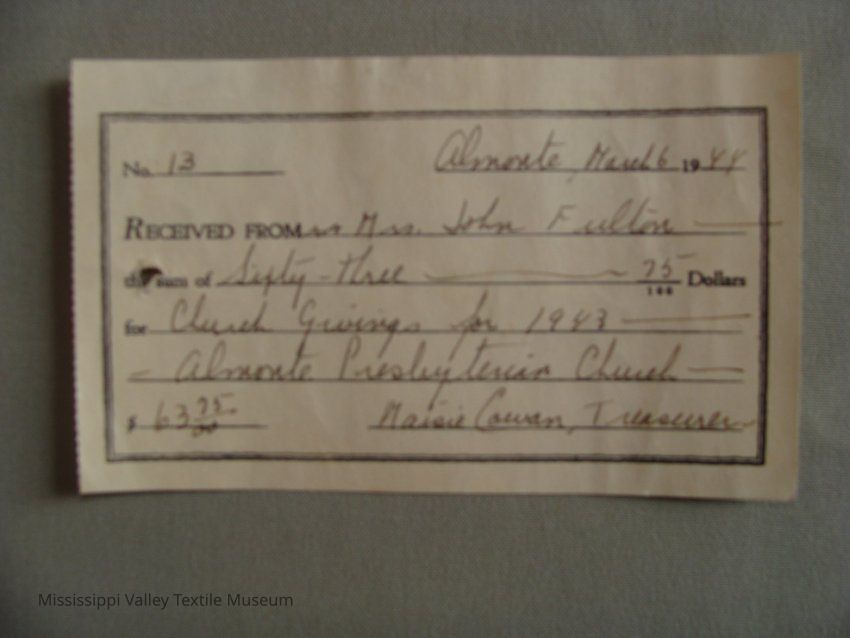 No. 13 Almonte, March 6 1944
RECEIVED FROM Mrs. John Fulton
the sum of Sixty-three 75/100 Dollars
for Church Givings for 1943
Almonte Presbyterian Church
$ 63 75/00 Maisie Cowan, Treasurer
Mississippi Valley Textile Museum